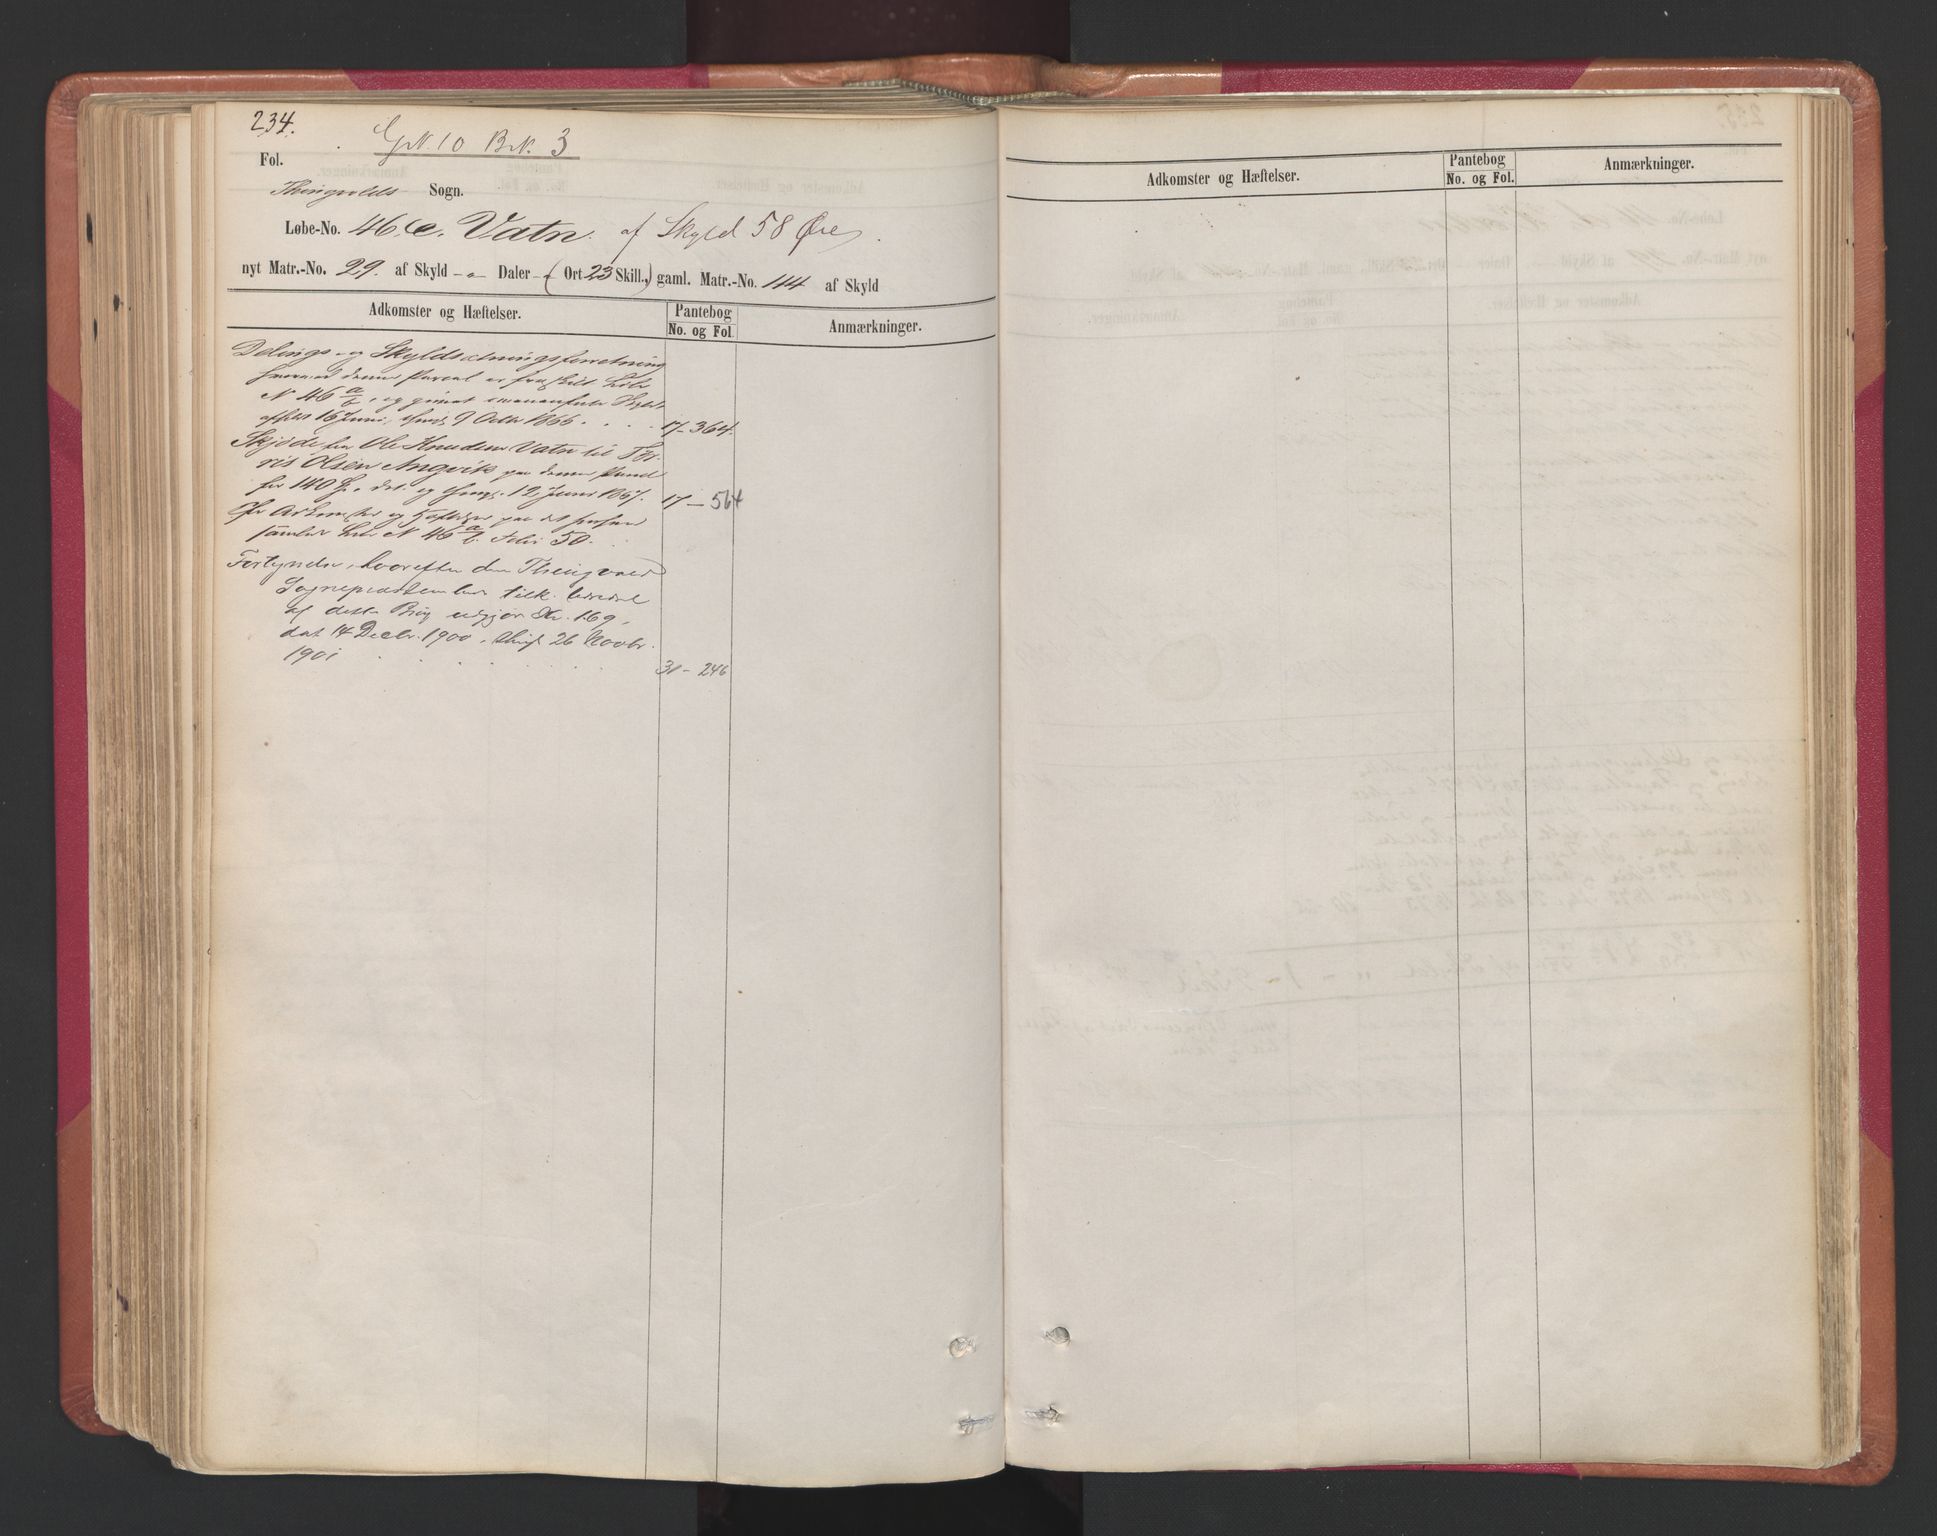 234.
Gr. N. 10 Br. N. 3
Fol.
Thingvolds Sogn.
Løbe-No. 46, c. Vatn. af Skyld 58 Øre.
nyt Matr.-No. 29. af Skyld - " - Daler - " ( Ort 23 Skill.,) gaml. Matr.-No. 144 af Skyld
Adkomster og Hæftelser. Pantebog Anmærkninger.
No. og Fol.
Delings- og Skyldsætningsforretning
hvorved denne Parcel er fraskilt Løbe
N 46 a/b, og givet ovenanførte Skyld
16 Juni, thingl. 9 Octbr 1866. . . . 17-364.
Skjøde fra Ole Knudsen Vatn til Tør-
ris Olsen Angvik paa denne Parcel
for 140 Spd. dat. og thingl. 12 Juni 1867. 17-564
Adkomster og Hæftelser paa det
samlede Løbe N 46 a/b Folio 50.
Forlignelse, hvorefter den Thingvold
Sognepræstembede tilk. Landskyld
af dette Brug udgjør Kr. 1.69,
dat 14 Decbr. 1900, thingl 26 Novbr.
1901 . . . . . . 31-246
Adkomster og Hæftelser. Pantebog Anmærkninger.
No. og Fol.